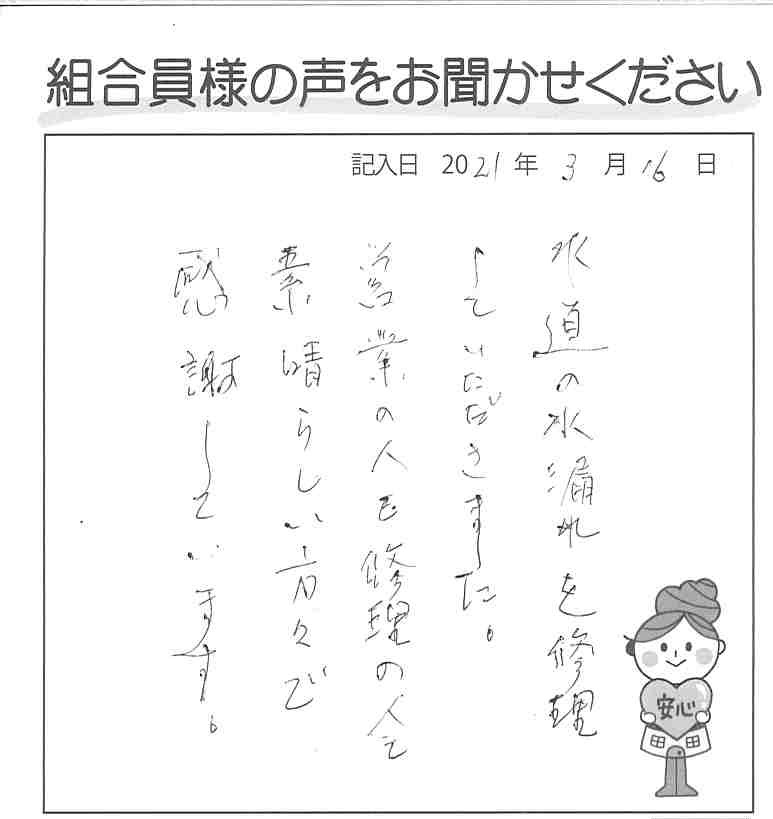 組合員様の声をお聞かせください
記入日 2021年 3月 16日
水道の水漏れを修理
していただきました。
営業の人も修理の人も
素晴らしい方々で
感謝しています。
安心